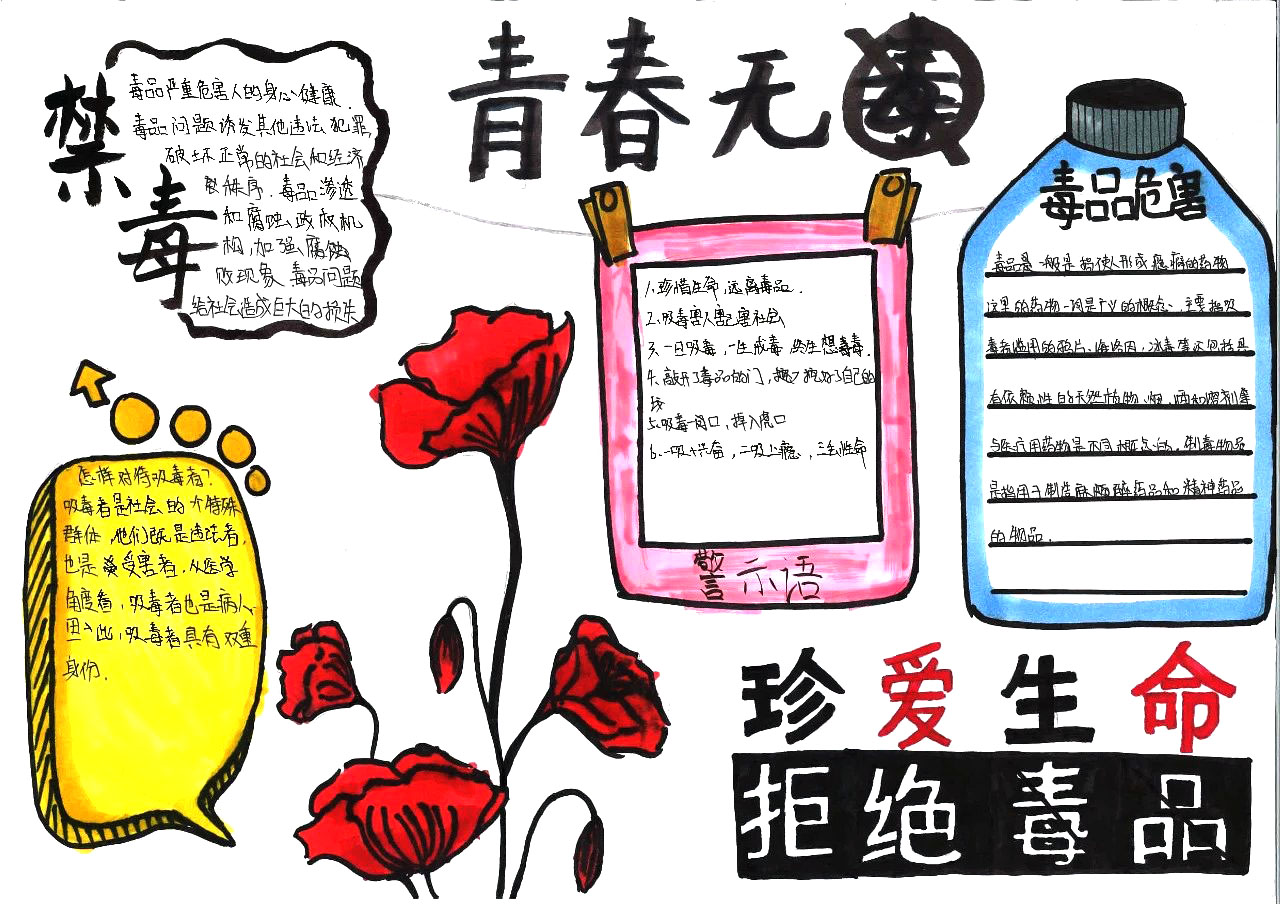 青春无毒
禁毒
毒品严重危害人的身心健康.
毒品问题诱发其他违法犯罪,
破坏正常的社会和经济
秩序.毒品渗透
和腐蚀政权机
构,加强腐蚀
败现象.毒品问题
给社会造成巨大的损失
1.珍惜生命,远离毒品.
2.吸毒害人害己害社会
3.一日吸毒,一生戒毒 终生想毒毒.
4.敲开了毒品的门,挖好了自己的
坟
5.吸毒一闭口,掉入虎口
6.一吸十兴奋,二吸上瘾,三丢性命
警示语
毒品危害
毒品是一般是指使人形成瘾癖的药物
这里的药物一词是广义的概念,主要指吸
毒者滥用的鸦片、海洛因,冰毒等还包括具
有依赖性的天然植物、烟、酒和溶剂等
与医疗用药物是不同概念的,制毒物品
是指用于制造麻醉药品和精神药品
的物品.
怎样对待吸毒者?
吸毒者是社会的个特殊
群体,他们既是违法者,
也是受害者,从医学
角度看,吸毒者也是病人
因此,吸毒者具有双重
身份.
珍爱生命
拒绝毒品